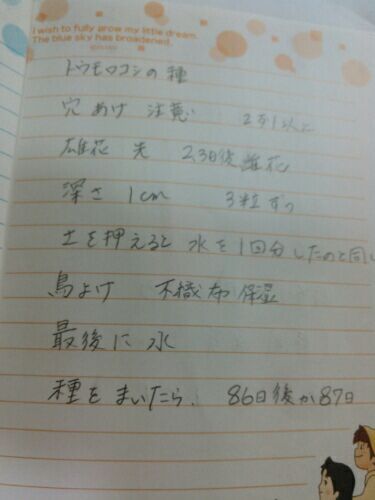 I wish to fully grow my little dream.
The blue sky has broadened.
トウモロコシの種
穴あけ 注意 2列以上
雄花 先 2.3日後 雌花
深さ 1cm 3粒ずつ
土を押えると 水を1回分したのと同じ
鳥よけ 不織布 保湿
最後に 水
種をまいたら、 86日後か87日